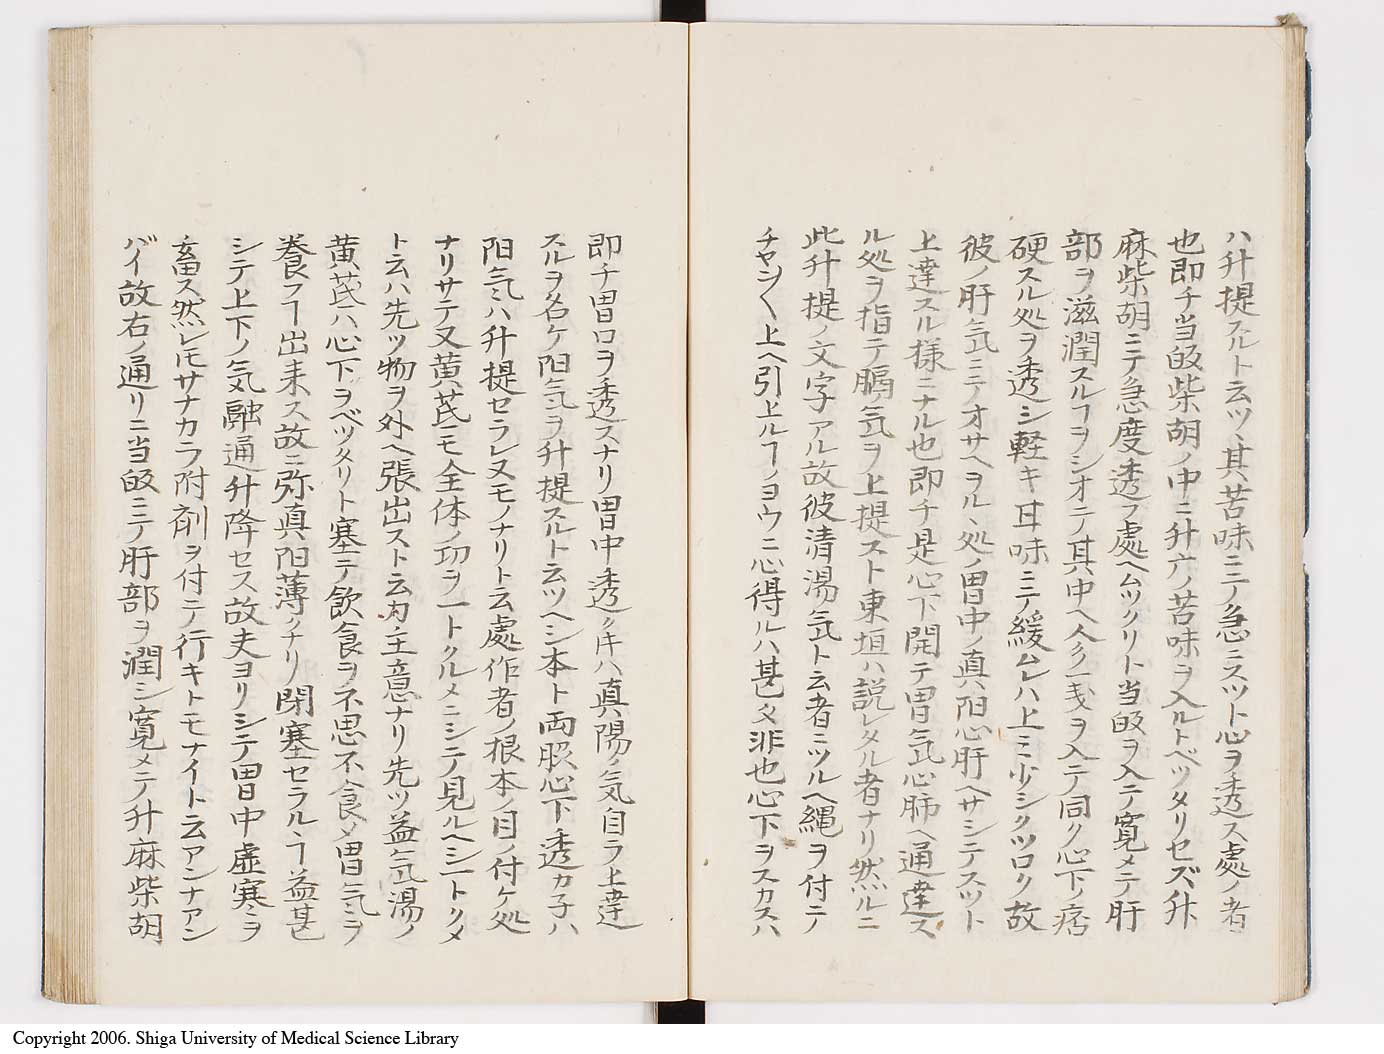 ハ升提スルト云ツヽ其苦味ニテ急ニスツト心ヲ透ス處ノ者
也即チ当皈柴胡ノ中ニ升六ノ苦味ヲ入ルトベツタリセズ升
麻柴胡ニテ急度透ラ處ヘムツクリト当皈ヲ入テ寛メテ肝
部ヲ滋潤スルヿヲシオテ其中ヘ人参一戔ヲ入テ同ク心下ノ痞
硬スル処ヲ透シ軽キ甘味ニテ緩ムレハ上ミ少シクツロク故
彼ノ肝気ニテオサヘヲルヽ処ノ胃中ノ真阳心肝ヘサシテスツト
上達スル様ニナル也即チ是心下開テ胃気心肺ヘ通達ス
ル処ヲ指テ膈気ヲ上提スト東垣ハ説レタル者ナリ然ルニ
此升提ノ文字アル故彼清湯気ト云者ニツルヘ縄ヲ付テ
チヤン〱上ヘ引上ルヿノヨウニ心得ルハ甚タ非也心下ヲスカスハ
即チ胃口ヲ透スナリ胃中透クキハ真陽ノ気自ラ上達
スルヲ名ケ阳気ヲ升提スルト云ツヘシ本ト両脇心下透カ子ハ
阳気ハ升提セラレヌモノナリト云處作者ノ根本ノ目ノ付ケ処
ナリサテ又黄芪モ全体ノ功ヲ一トクルメニシテ見ルヘシ一トクメ
ト云ハ先ツ物ヲ外ヘ張出スト云カ主意ナリ先ツ益気湯ノ
黄芪ハ心下ヲベツタリト塞テ飲食ヲ不思不食メ胃気ヲ
養フヿ出来ス故ニ弥真阳薄クナリ閉塞セラルヽヿ益甚
シテ上下ノ気融通升降セス故夫ヨリシテ胃中虚寒ヲ
畜ス然レ𪜈サナカラ附剤ヲ付テ行キトモナイト云アンナアン
バイ故右ノ通リニ当皈ニテ肝部ヲ潤シ寛メテ升麻柴胡
Copyright 2006. Shiga University of Medical Science Library